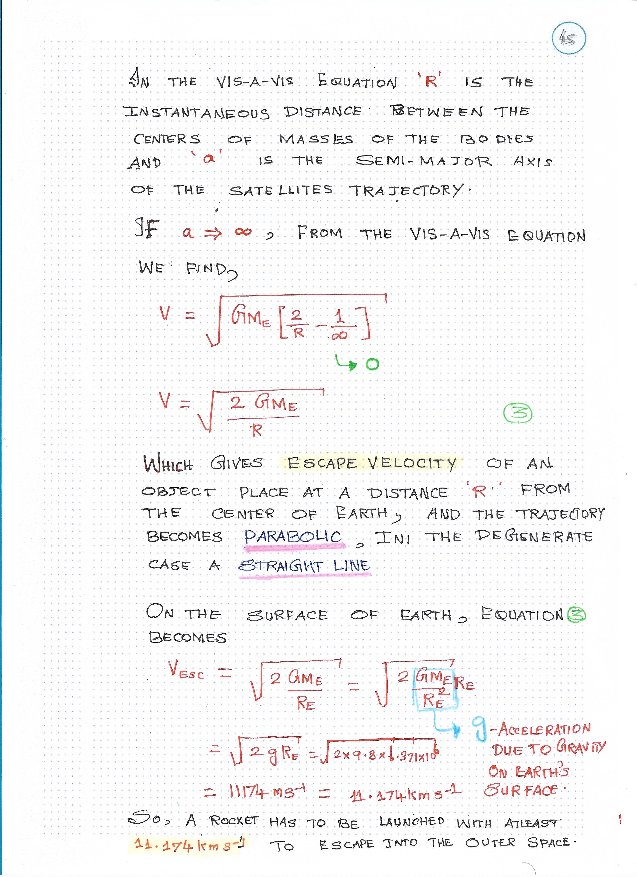 45
IN THE VIS-A-VIS EQUATION 'R' IS THE
INSTANTANEOUS DISTANCE BETWEEN THE
CENTERS OF MASSES OF THE BODIES
AND 'a' IS THE SEMI-MAJOR AXIS
OF THE SATELLITES TRAJECTORY.
IF a ⇒ ∞, FROM THE VIS-A-VIS EQUATION
WE FIND,
V = √(GM_E [2/R − 1/∞])
↳ 0
V = √(2 GM_E / R)
3
WHICH GIVES ESCAPE VELOCITY OF AN
OBJECT PLACE AT A DISTANCE 'R' FROM
THE CENTER OF EARTH, AND THE TRAJECTORY
BECOMES PARABOLIC, INI THE DEGENERATE
CASE A STRAIGHT LINE
ON THE SURFACE OF EARTH, EQUATION 3
BECOMES
V_ESC = √(2 GM_E / R_E) = √(2 GM_E / R_E² R_E)
↳ g - ACCELERATION
DUE TO GRAVITY
ON EARTH'S
SURFACE.
= √(2 g R_E) = √(2×9.8×6.371×10⁶)
= 11174 ms⁻¹ = 11.174 kms⁻¹
SO, A ROCKET HAS TO BE LAUNCHED WITH ATLEAST
11.174 kms⁻¹ TO ESCAPE INTO THE OUTER SPACE.